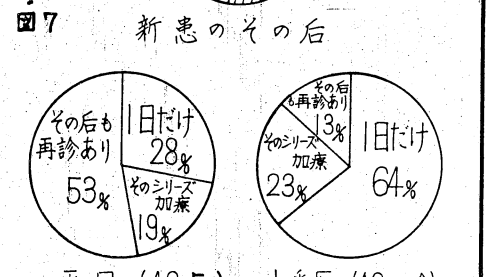 図7
新患のその后
その后も
再診あり
53%
1日だけ
28%
そのシリーズ
加療
19%
その后
も再診あり
13%
そのシリーズ
加療
23%
1日だけ
64%